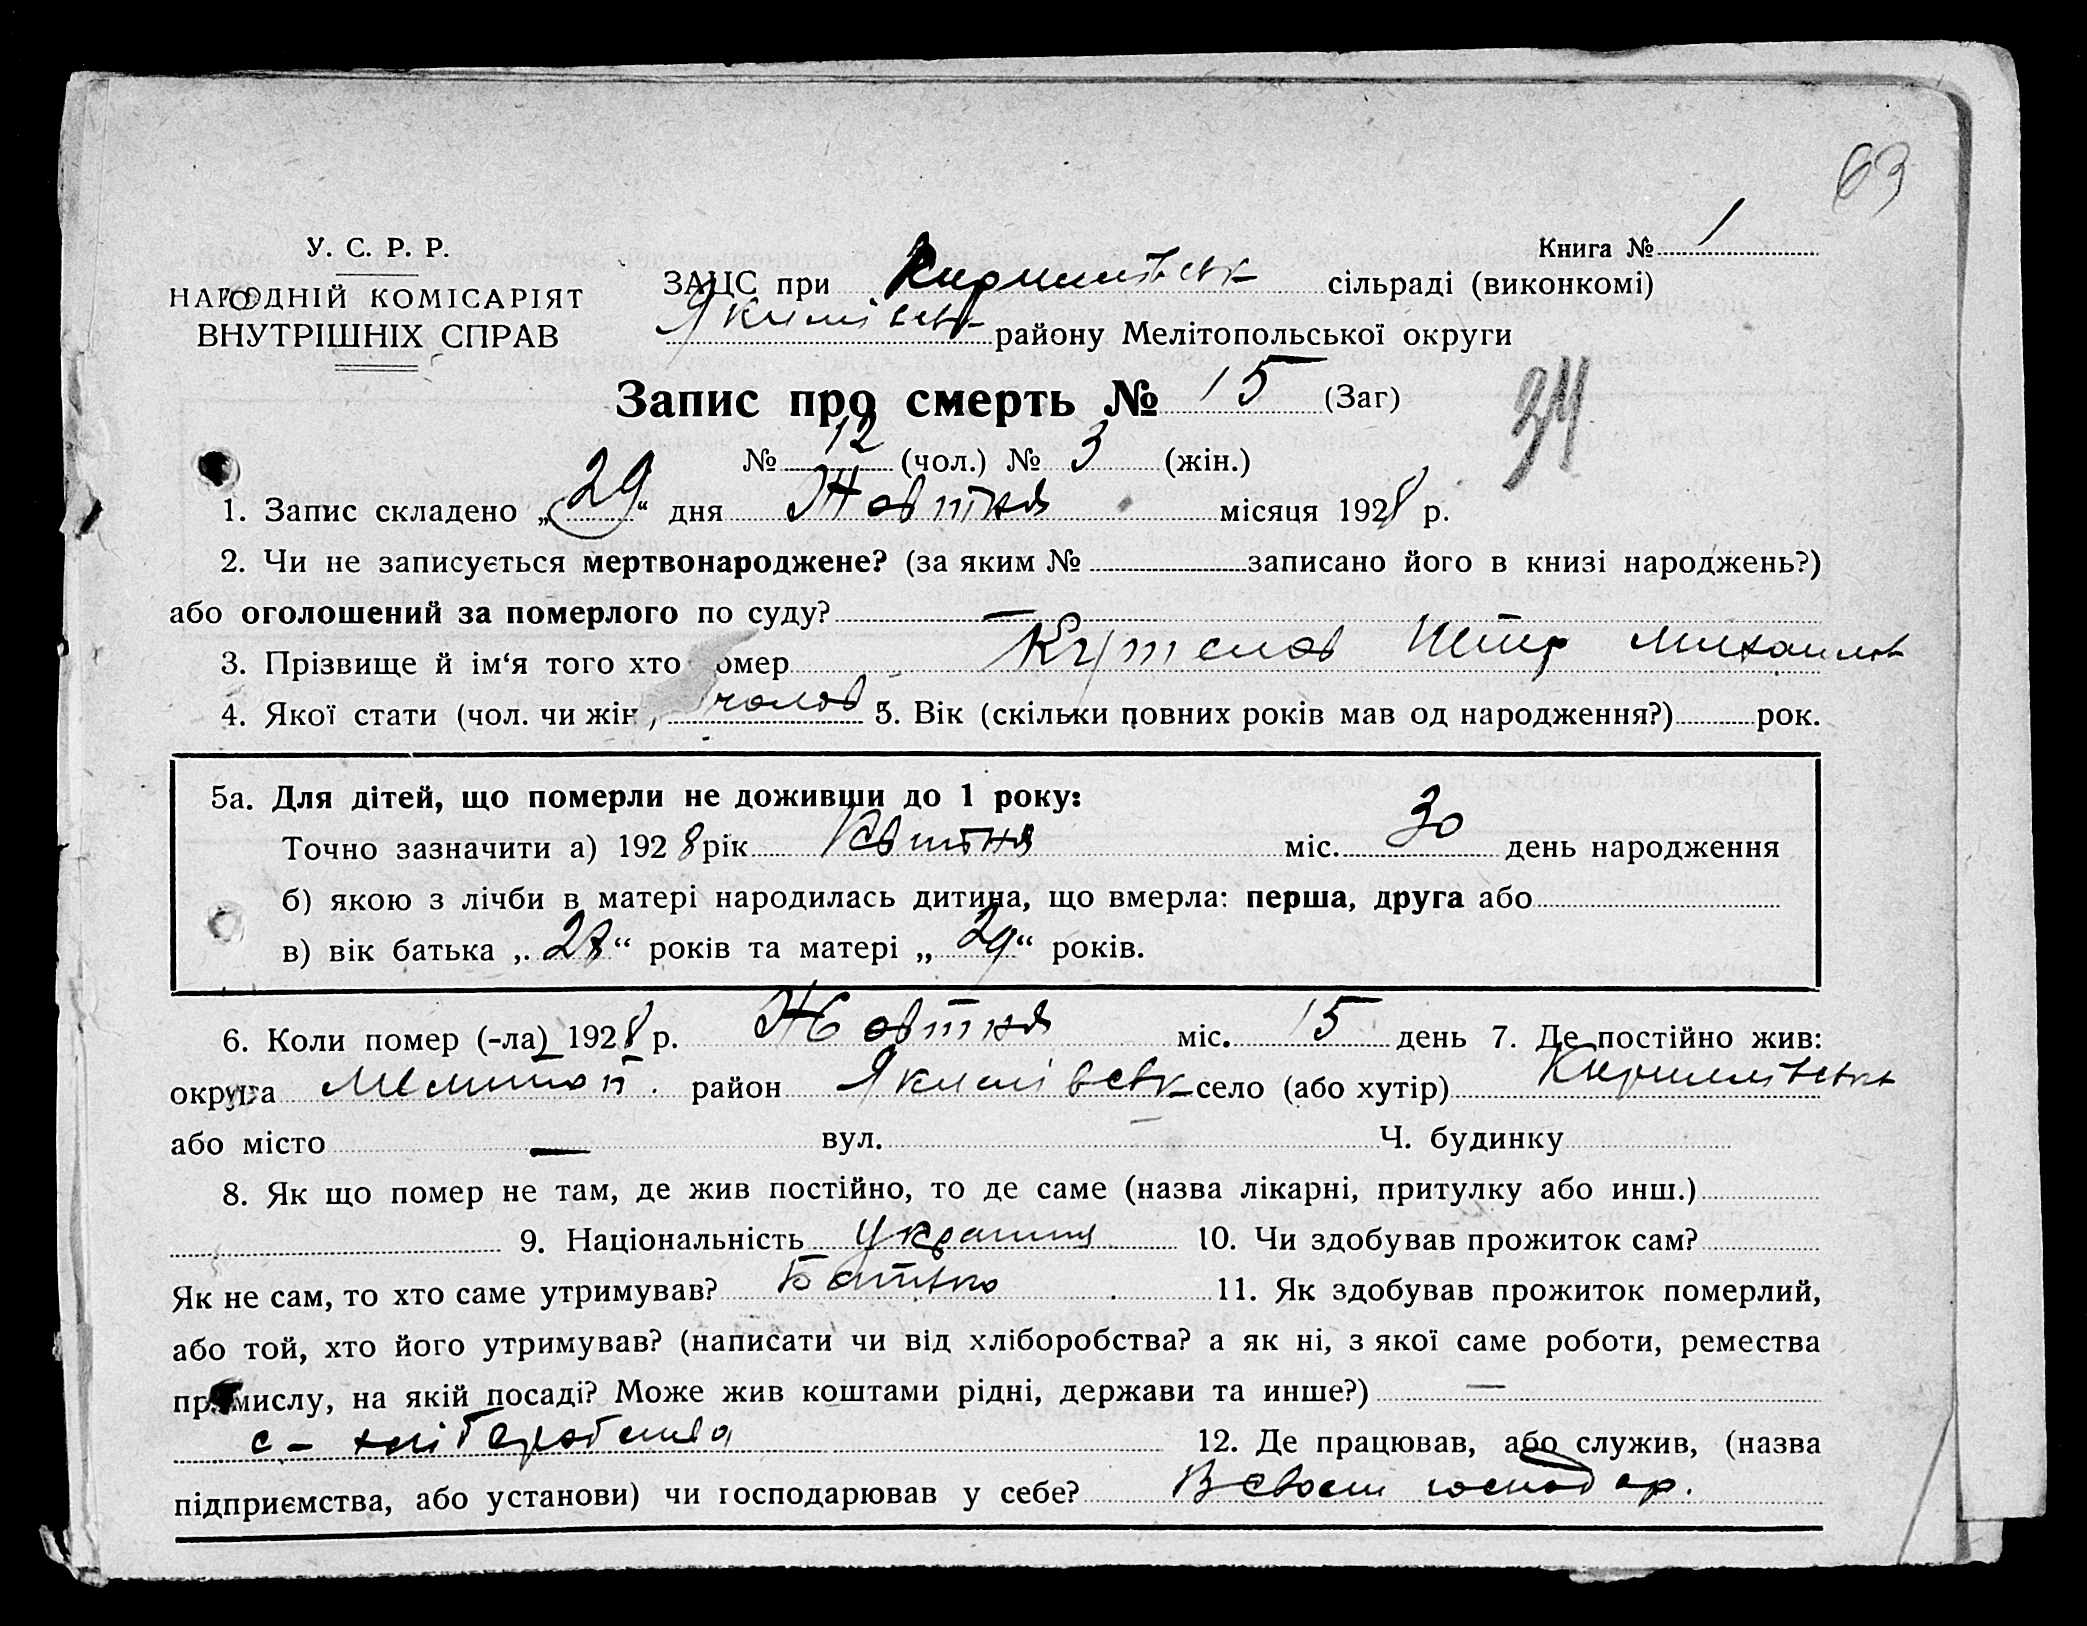 63
У. С. Р. Р.
НАРОДНІЙ КОМІСАРІЯТ
ВНУТРІШНІХ СПРАВ
Книга № 1
ЗАЦС при Кирилівськ сільраді (виконкомі)
Якимівськ району Мелітопольської округи
Запис про смерть № 15 (Заг)
34
№ 12 (чол.) № 3 (жін.)
1. Запис складено „29“ дня Жовтня місяця 1928 р.
2. Чи не записується мертвонароджене? (за яким № записано його в книзі народжень?)
або оголошений за померлого по суду? —
3. Прізвище й ім‘я того хто помер Кутєпов Петр Михаилов
4. Якої стати (чол. чи жін.) чолов 5. Вік (скільки повних років мав од народження?) рок.
5а. Для дітей, що померли не доживши до 1 року:
Точно зазначити а) 1928 рік Квітня міс. 30 день народження
б) якою з лічби в матері народилась дитина, що вмерла: перша, друга або
в) вік батька „28“ років та матері „29“ років.
6. Коли помер (-ла) 1928 р. Жовтня міс. 15 день 7. Де постійно жив:
округа Мелитоп. район Якимівськ село (або хутір) Кирилівськ
або місто — вул. Ч. будинку
8. Як що помер не там, де жив постійно, то де саме (назва лікарні, притулку або инш.)
9. Національність Украинц 10. Чи здобував прожиток сам?
Як не сам, то хто саме утримував? Батько 11. Як здобував прожиток померлий,
або той, хто його утримував? (написати чи від хліборобства? а як ні, з якої саме роботи, ремества
промислу, на якій посаді? Може жив коштами рідні, держави та инше?) —
с – хліборобства 12. Де працював, або служив, (назва
підприємства, або установи) чи господарював у себе? В своем господар.